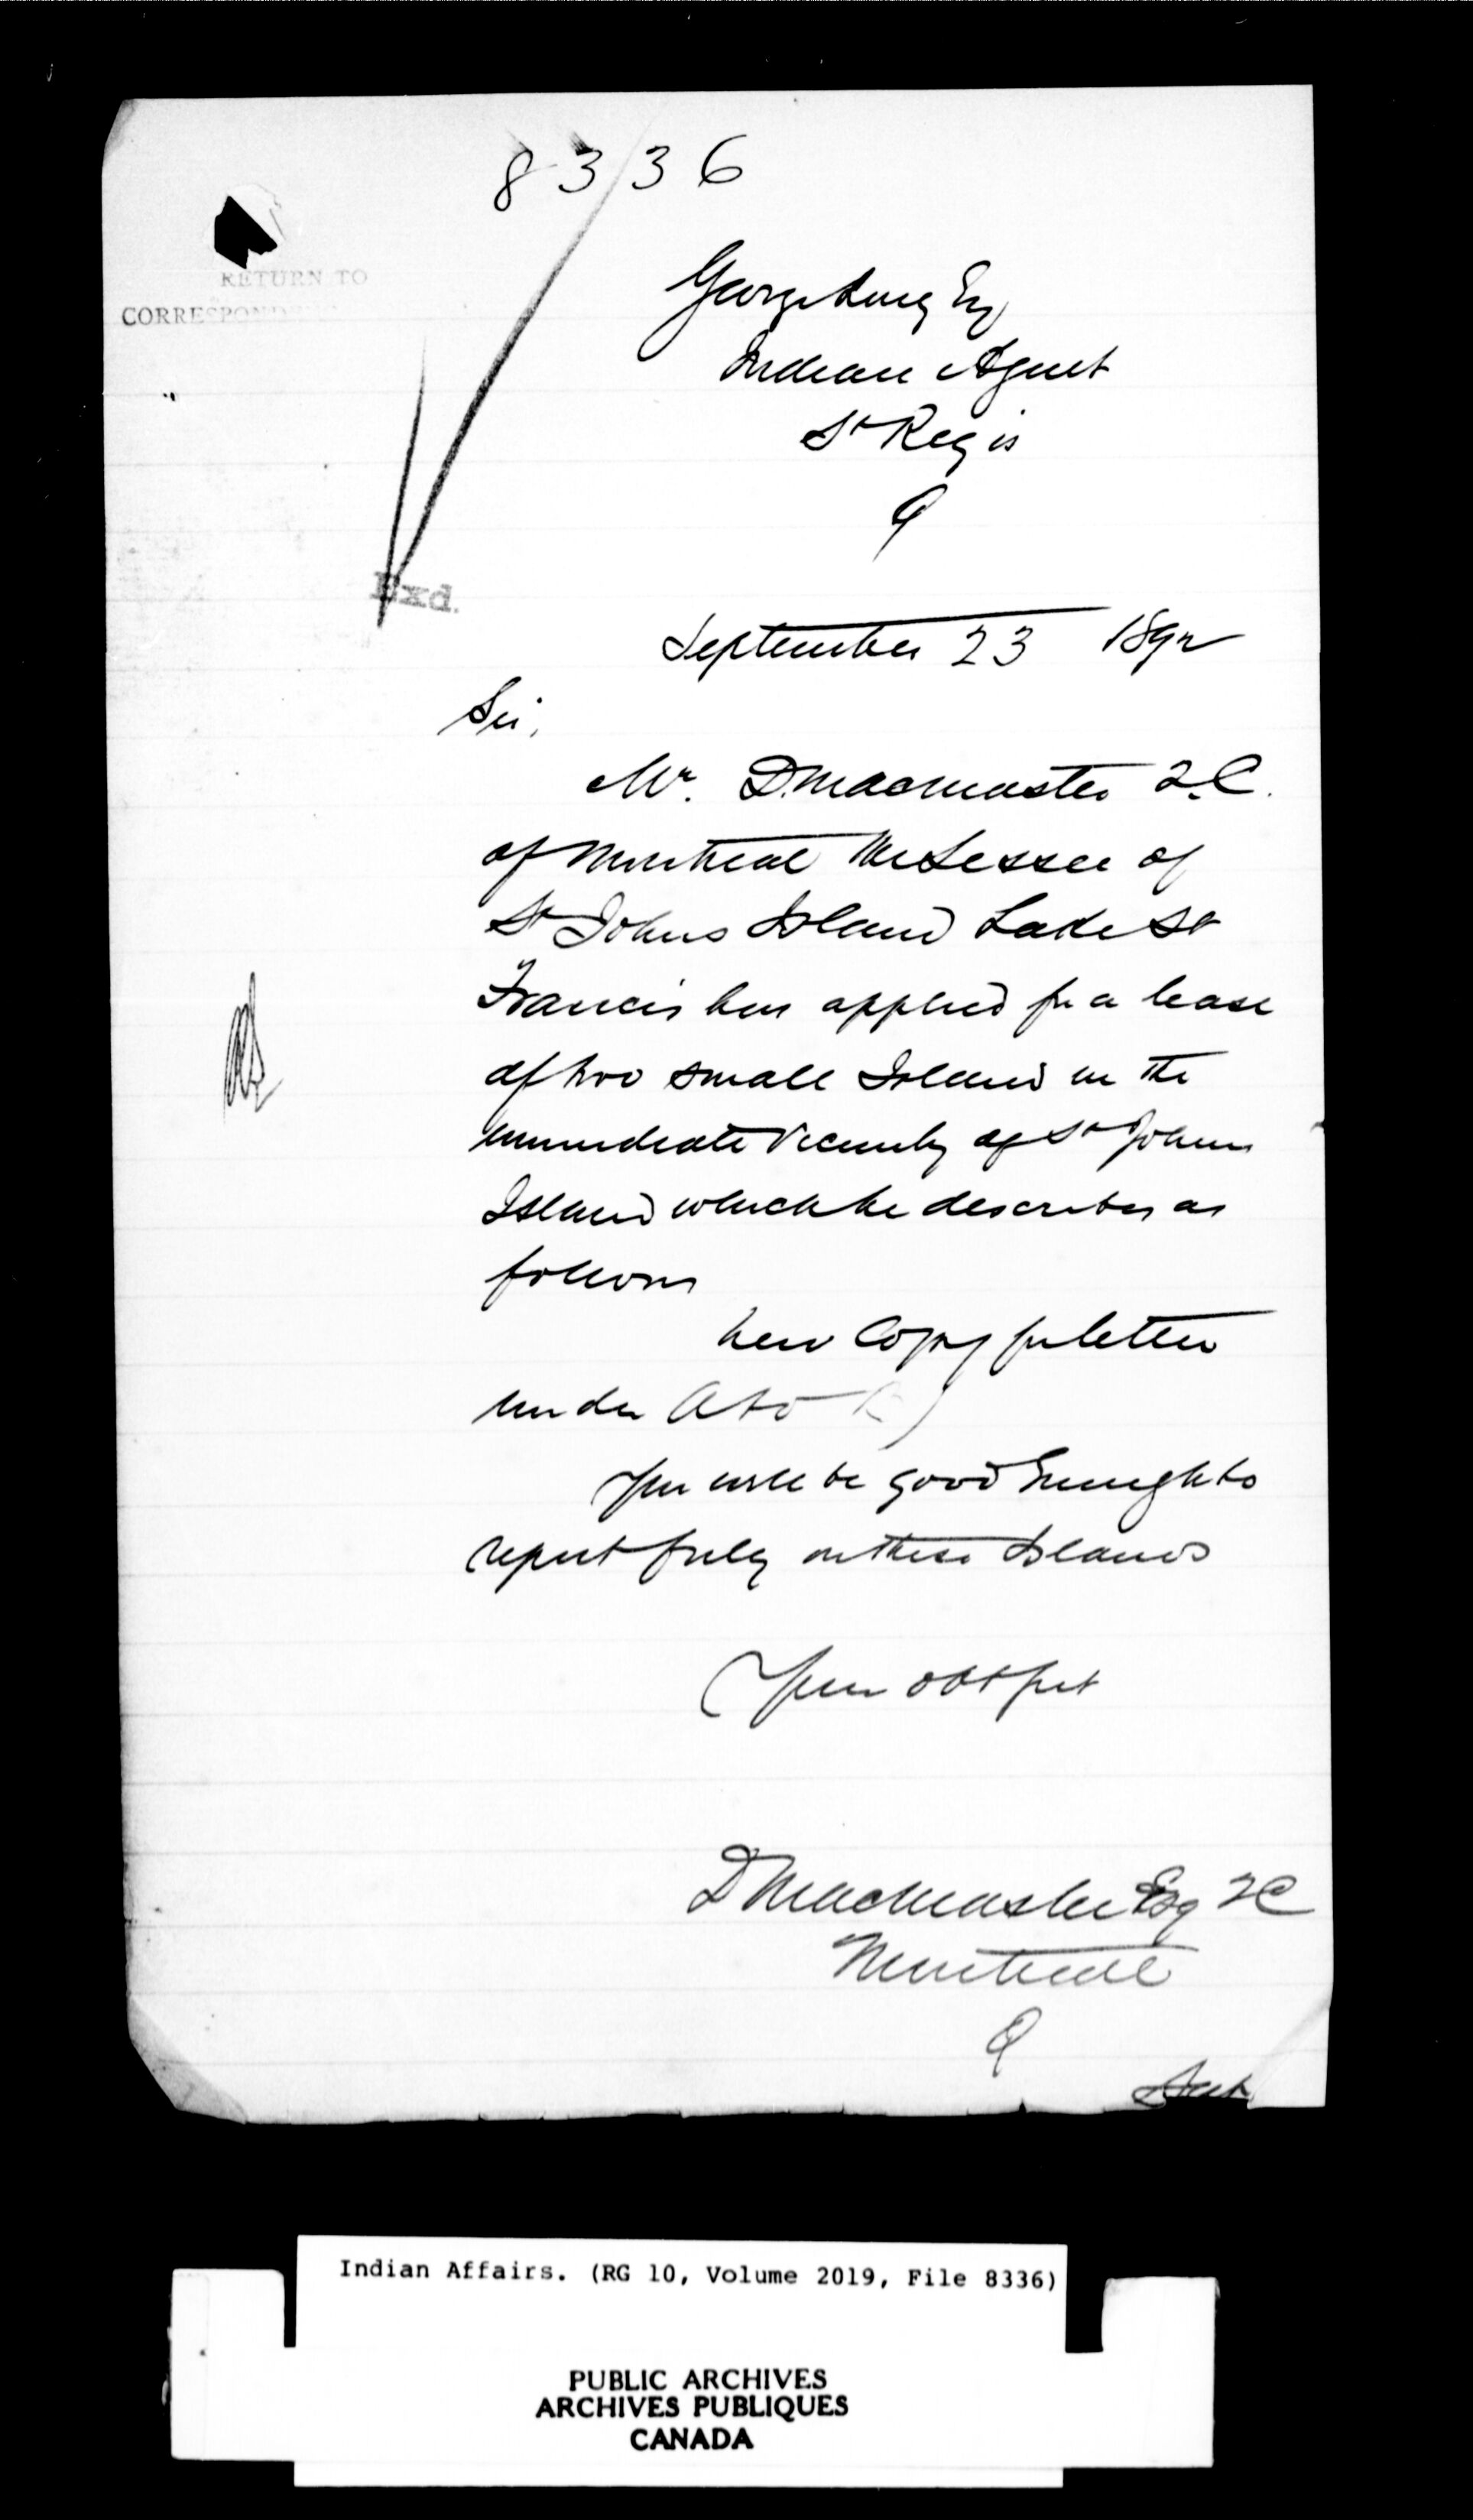 8336
RETURN TO
CORRESPOND
George Long Esq
Indian Agent
St Regis
Q
Exd.
September 23 1892
Sir,
Mr. D. Macmaster Q.C.
of Montreal the Lessee of
St Johns Island Lake St
Francis has applied for a lease
of two small Island in the
immediate Vicinity of St Johns
Island which he describes as
follows
here Copy fr letter
under A to B)
You will be good Enough to
report fully on these Islands
Your obt Sert
D Macmaster Esq QC
Montreal
Q
Indian Affairs. (RG 10, Volume 2019, File 8336)
PUBLIC ARCHIVES
ARCHIVES PUBLIQUES
CANADA